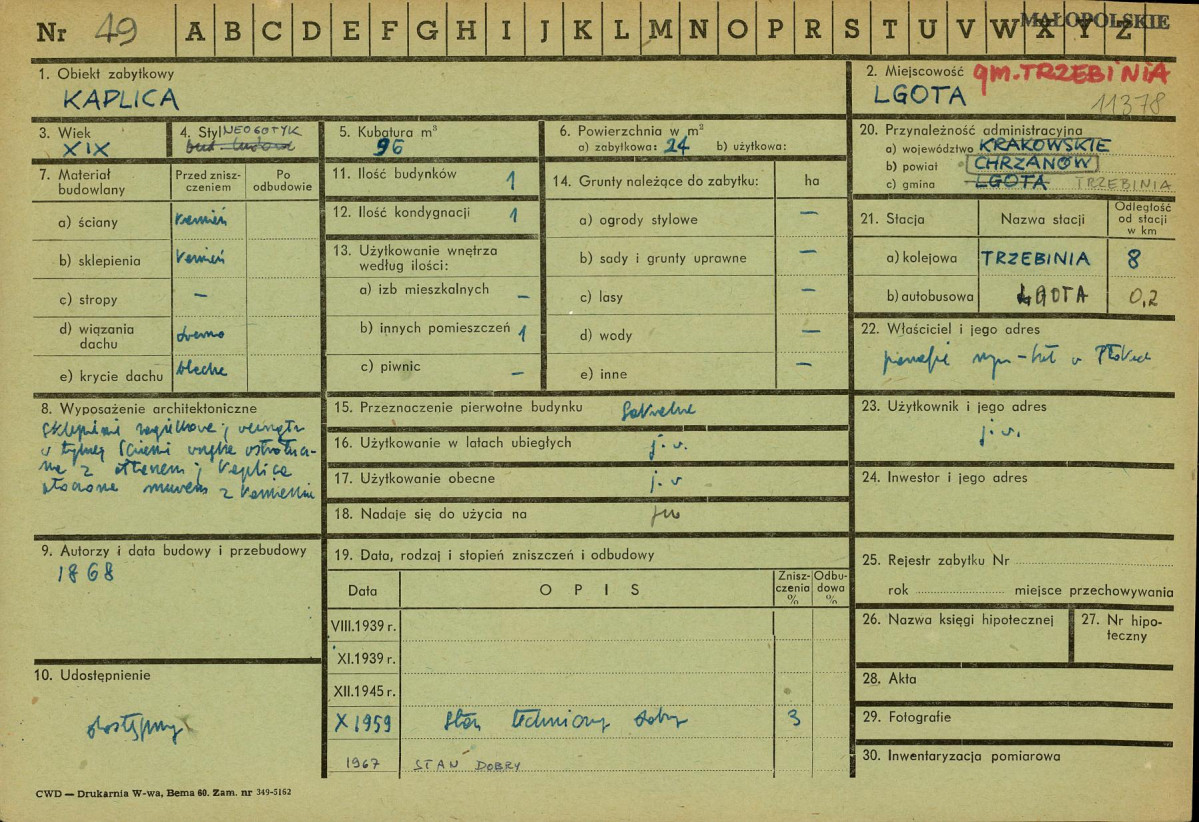 Nr 49 A B C D E F G H I J K L M N O P R S T U V W X Y Z MAŁOPOLSKIE
1. Obiekt zabytkowy
KAPLICA
2. Miejscowość gm. TRZEBINIA
LGOTA
11378
3. Wiek
XIX
4. Styl NEOGOTYK
5. Kubatura m³
96
6. Powierzchnia w m²
a) zabytkowa: 24 b) użytkowa:
20. Przynależność administracyjna
a) województwo KRAKOWSKIE
b) powiat CHRZANÓW
c) gmina LGOTA TRZEBINIA
7. Materiał budowlany
Przed zniszczeniem
Po odbudowie
a) ściany kamień
b) sklepienia kamień
c) stropy –
d) wiązania dachu drewno
e) krycie dachu blacha
11. Ilość budynków 1
12. Ilość kondygnacji 1
13. Użytkowanie wnętrza
według ilości:
a) izb mieszkalnych –
b) innych pomieszczeń 1
c) piwnic –
14. Grunty należące do zabytku: ha
a) ogrody stylowe –
b) sady i grunty uprawne –
c) lasy –
d) wody –
e) inne –
21. Stacja Nazwa stacji Odległość od stacji w km
a) kolejowa TRZEBINIA 8
b) autobusowa LGOTA 0,2
22. Właściciel i jego adres
parafia rzym-kat w Płokach
8. Wyposażenie architektoniczne
w tylnej ścianie wnęka
z ołtarzem; kaplica
otoczona murem z kamienia
15. Przeznaczenie pierwotne budynku Sakralne
16. Użytkowanie w latach ubiegłych j. w.
17. Użytkowanie obecne j. w
18. Nadaje się do użycia na
23. Użytkownik i jego adres
j. w.
24. Inwestor i jego adres
9. Autorzy i data budowy i przebudowy
1868
10. Udostępnienie
dostępny
19. Data, rodzaj i stopień zniszczeń i odbudowy
Data OPIS Zniszczenia % Odbudowa %
VIII.1939 r.
XI.1939 r.
XII.1945 r.
X 1959 Stan techniczny dobry 3
1967 STAN DOBRY
25. Rejestr zabytku Nr
rok miejsce przechowywania
26. Nazwa księgi hipotecznej
27. Nr hipoteczny
28. Akta
29. Fotografie
30. Inwentaryzacja pomiarowa
CWD — Drukarnia W-wa, Bema 60. Zam. nr 349-5162